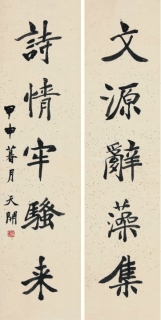 文源辭藻集
詩情牢騷来
甲申暮月天開